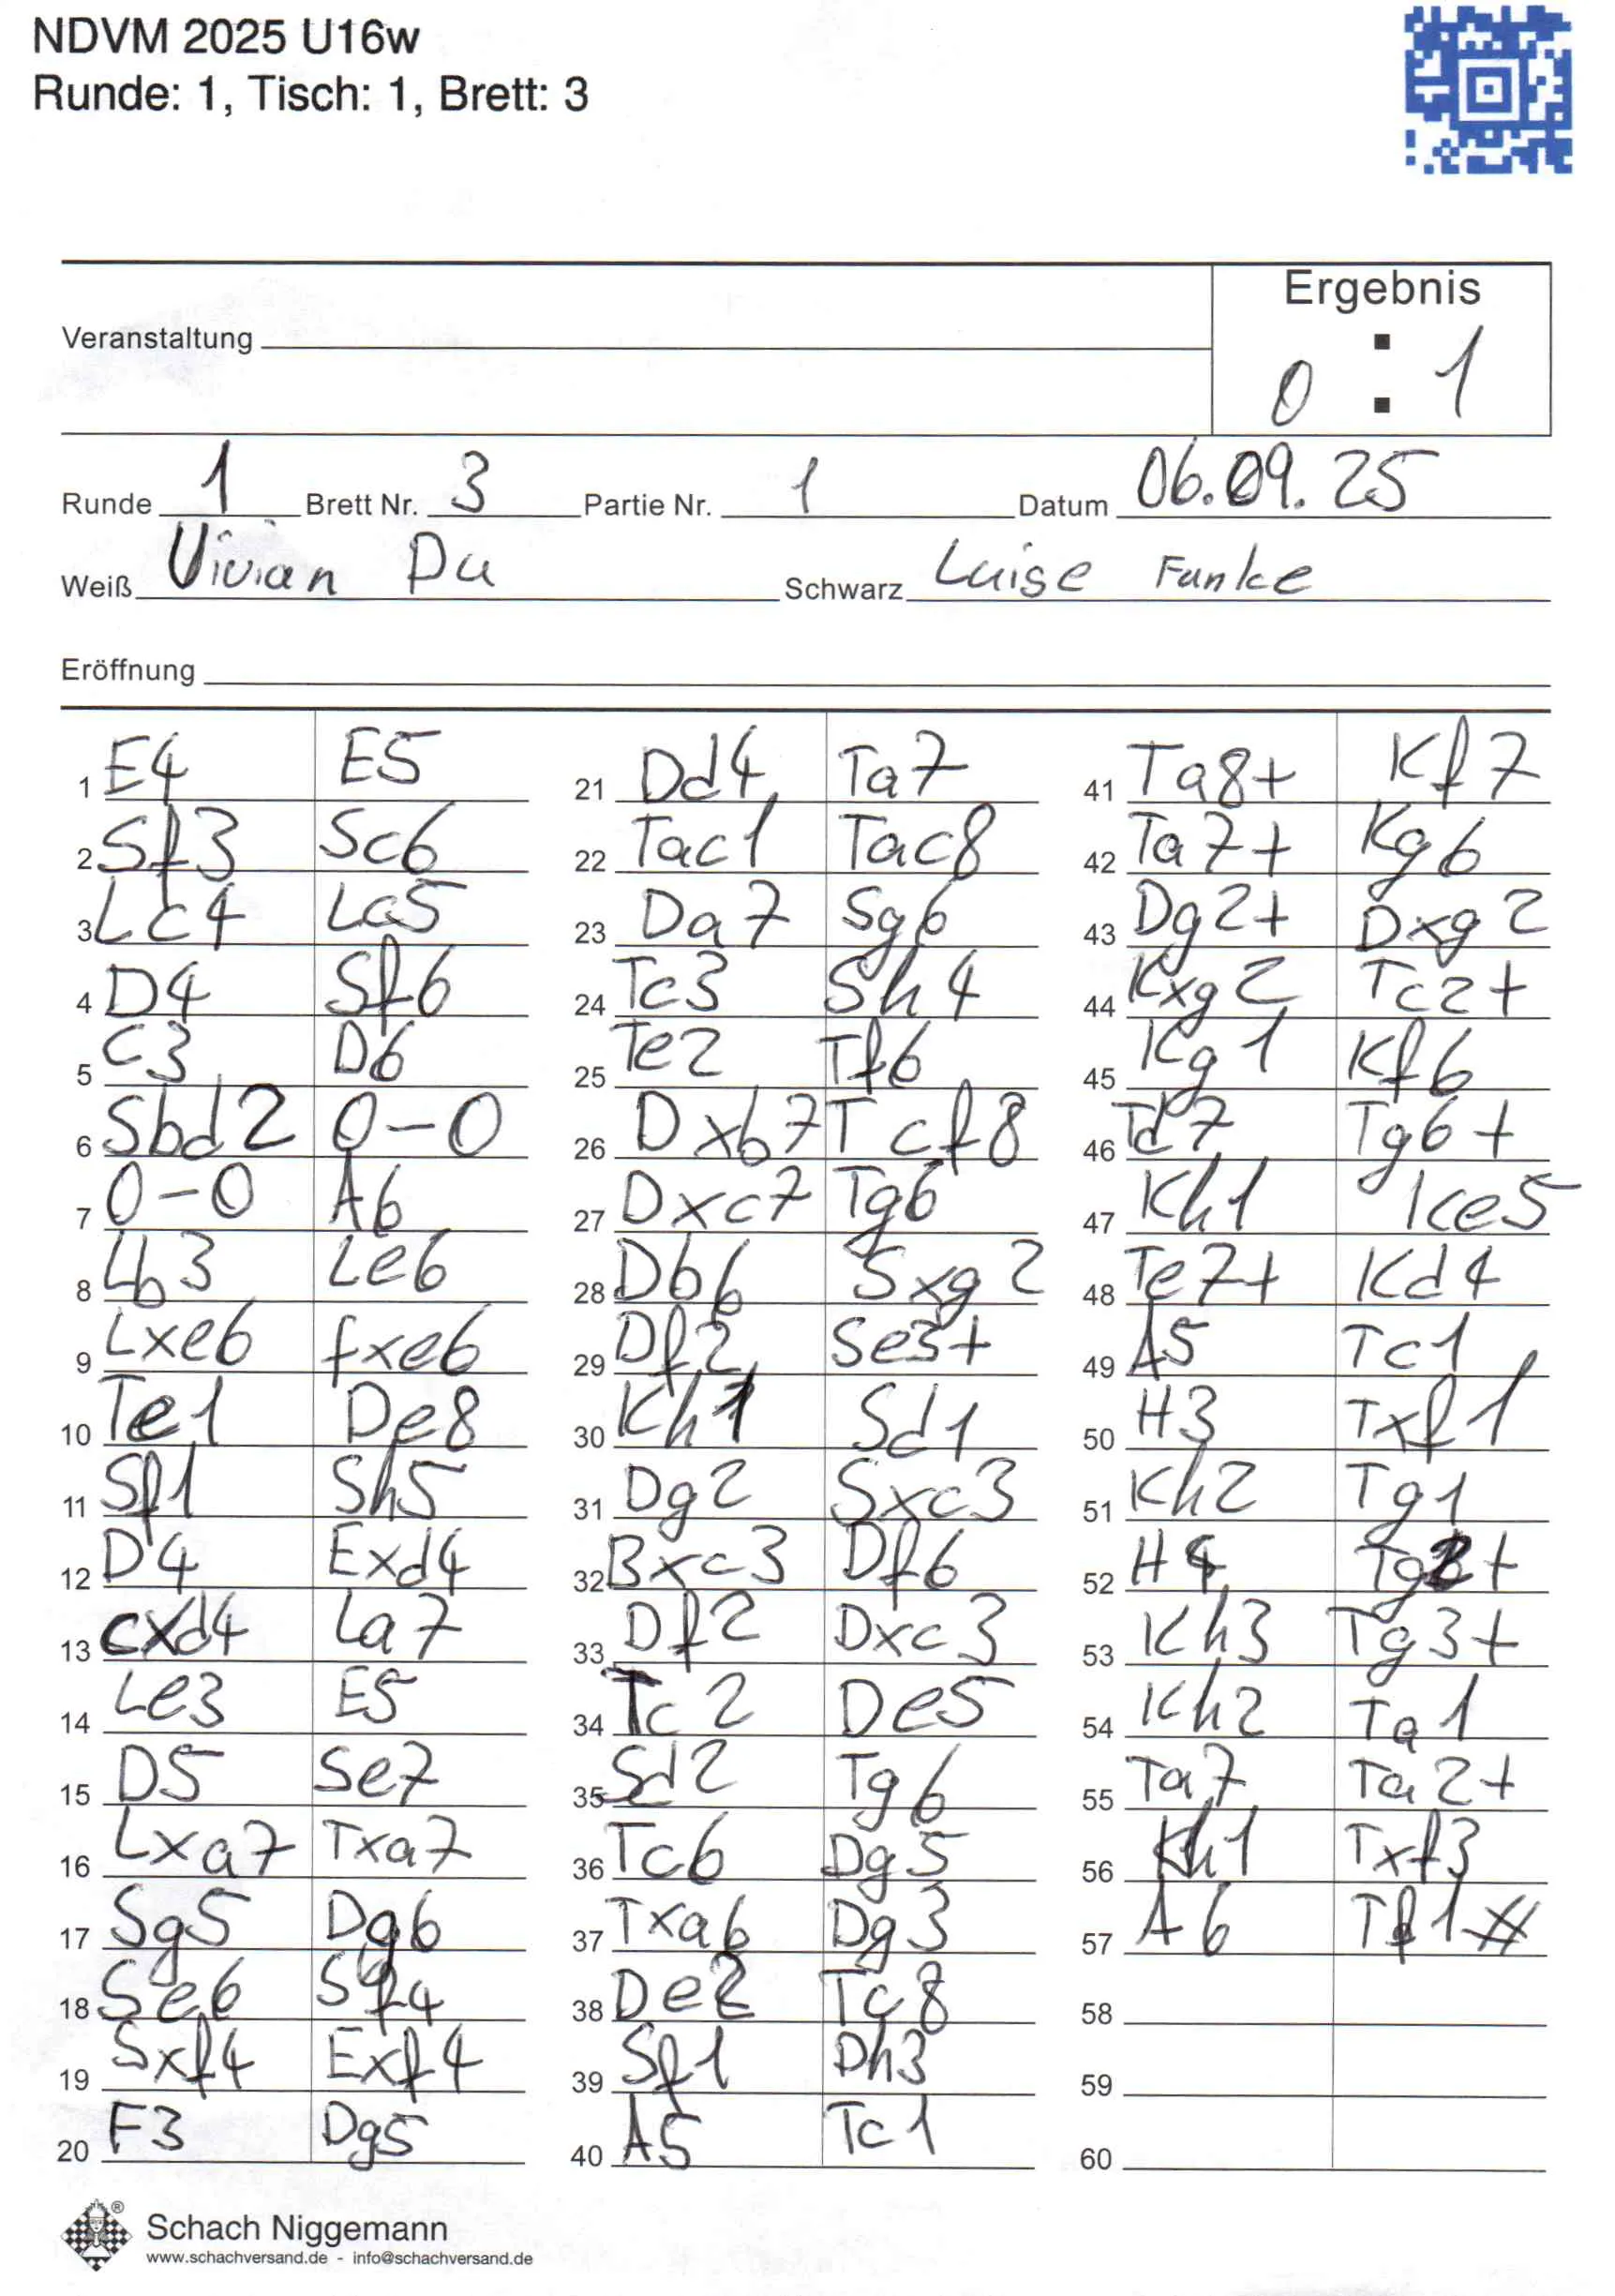 NDVM 2025 U16w
Runde: 1, Tisch: 1, Brett: 3
Ergebnis
Veranstaltung
0 : 1
Runde 1 Brett Nr. 3 Partie Nr. 1 Datum 06.09.25
Weiß Vivian Du Schwarz Luise Funke
Eröffnung
1 E4 E5
2 Sf3 Sc6
3 Lc4 Lc5
4 D4 Sf6
5 C3 D6
6 Sbd2 0-0
7 0-0 A6
8 Lb3 Le6
9 Lxe6 fxe6
10 Te1 De8
11 Sf1 Sh5
12 D4 Exd4
13 cxd4 La7
14 Le3 E5
15 D5 Se7
16 Lxa7 Txa7
17 Sg5 Dg6
18 Se6 Sf4
19 Sxf4 Exf4
20 F3 Dg5
21 Dd4 Ta7
22 Tac1 Tac8
23 Da7 Sg6
24 Tc3 Sh4
25 Te2 Tf6
26 Dxb7 Tcf8
27 Dxc7 Tg6
28 Db6 Sxg2
29 Df2 Se3+
30 Kh1 Sd1
31 Dg2 Sxc3
32 Bxc3 Df6
33 Df2 Dxc3
34 Tc2 De5
35 Sd2 Tg6
36 Tc6 Dg5
37 Txa6 Dg3
38 De2 Tc8
39 Sf1 Dh3
40 A5 Tc1
41 Ta8+ Kf7
42 Ta7+ Kg6
43 Dg2+ Dxg2
44 Kxg2 Tc2+
45 Kg1 Kf6
46 Td7 Tg6+
47 Kh1 Ke5
48 Te7+ Kd4
49 A5 Tc1
50 H3 Txf1
51 Kh2 Tg1
52 H4 Tg2+
53 Kh3 Tg3+
54 Kh2 Ta1
55 Ta7 Ta2+
56 Kh1 Txf3
57 A6 Tf1#
58
59
60
Schach Niggemann
www.schachversand.de - info@schachversand.de